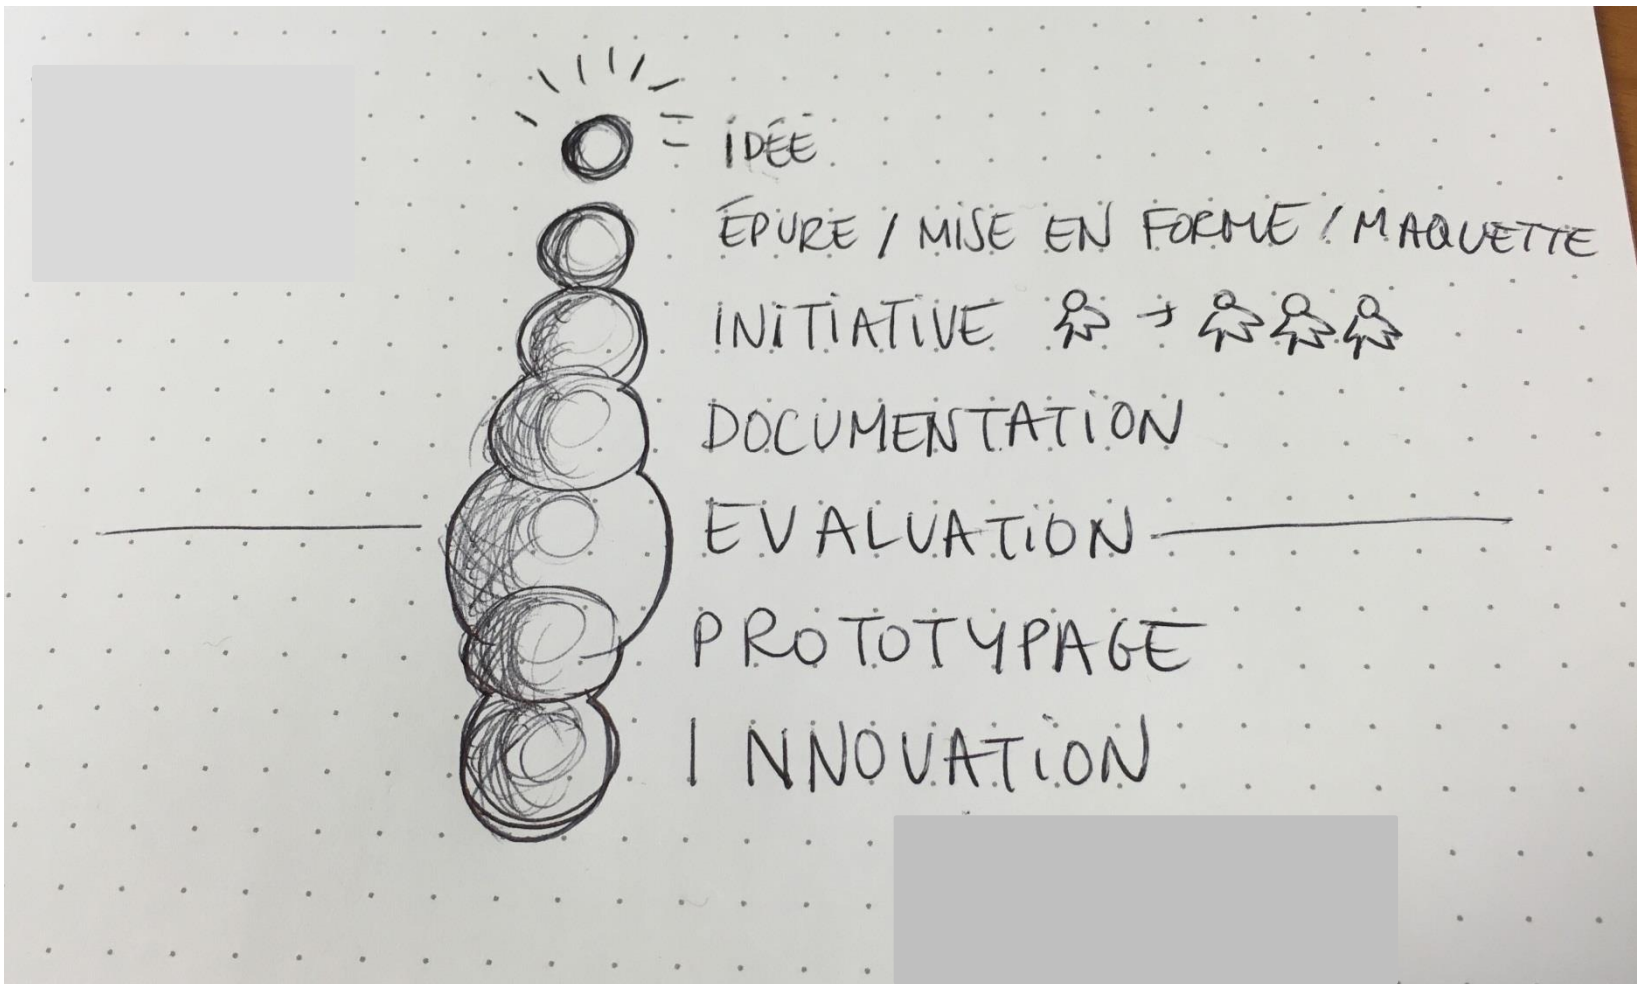 IDÉE
ÉPURE / MISE EN FORME / MAQUETTE
INITIATIVE
DOCUMENTATION
EVALUATION
PROTOTYPAGE
INNOVATION